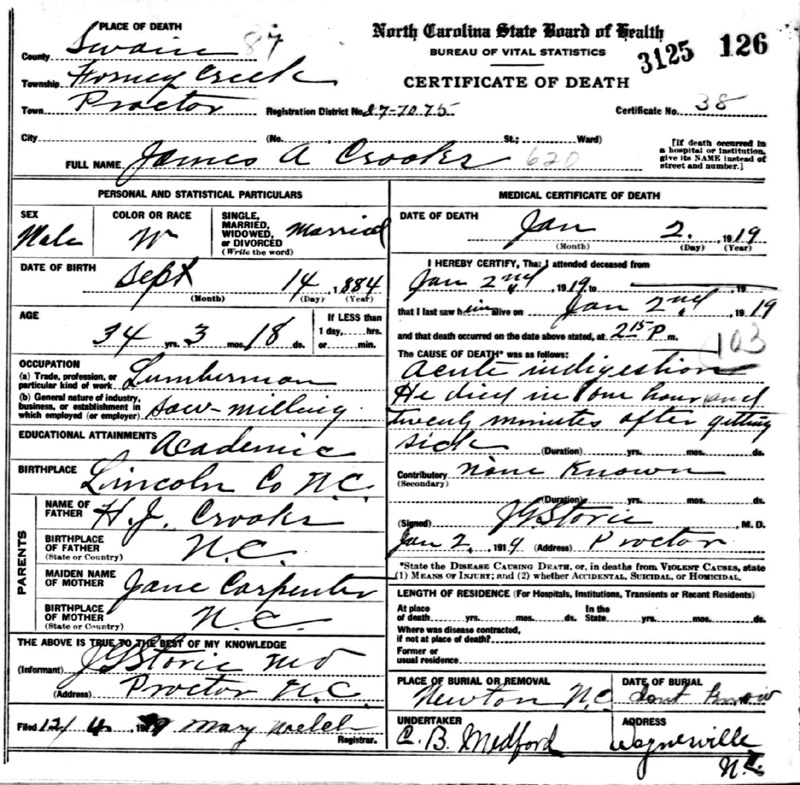 North Carolina State Board of Health
BUREAU OF VITAL STATISTICS
3125 126
CERTIFICATE OF DEATH
PLACE OF DEATH
County Swain 87
Township Forney Creek
Town Proctor Registration District No. 87-7075 Certificate No. 38
City (No. St.; Ward)
[If death occurred in a hospital or institution, give its NAME instead of street and number.]
FULL NAME James A Crooks 620
PERSONAL AND STATISTICAL PARTICULARS
SEX Male
COLOR OR RACE W
SINGLE, MARRIED, WIDOWED, or DIVORCED (Write the word) Married
DATE OF BIRTH Sept 14, 1884
(Month) (Day) (Year)
AGE
34 yrs. 3 mos. 18 ds.
If LESS than 1 day, hrs. or min.
OCCUPATION
(a) Trade, profession, or particular kind of work Lumberman
(b) General nature of industry, business, or establishment in which employed (or employer) saw-milling
EDUCATIONAL ATTAINMENTS Academic
BIRTHPLACE Lincoln Co N.C.
PARENTS
NAME OF FATHER H.J. Crooks
BIRTHPLACE OF FATHER (State or Country) N.C.
MAIDEN NAME OF MOTHER Jane Carpenter
BIRTHPLACE OF MOTHER (State or Country) N.C.
THE ABOVE IS TRUE TO THE BEST OF MY KNOWLEDGE
(Informant) JGStorie MD
(Address) Proctor N.C.
Filed 12/4 19 Mary Welch
Registrar.
MEDICAL CERTIFICATE OF DEATH
DATE OF DEATH Jan 2, 1919
(Month) (Day) (Year)
I HEREBY CERTIFY, That I attended deceased from
Jan 2nd, 1919 to 19
that I last saw him alive on Jan 2nd 1919
and that death occurred on the date above stated, at 2 15 P m.
103
The CAUSE OF DEATH* was as follows:
Acute indigestion
He died in one hour and
twenty minutes after getting
sick (Duration) yrs. mos. ds.
Contributory (Secondary) None Known
(Duration) yrs. mos. ds.
(Signed) JGStorie M.D.
Jan 2, 1919 (Address) Proctor
*State the DISEASE CAUSING DEATH, or, in deaths from VIOLENT CAUSES, state
(1) MEANS OF INJURY; and (2) whether ACCIDENTAL, SUICIDAL, or HOMICIDAL.
LENGTH OF RESIDENCE (For Hospitals, Institutions, Transients or Recent Residents)
At place of death yrs. mos. ds. In the State yrs. mos. ds.
Where was disease contracted, if not at place of death?
Former or usual residence
PLACE OF BURIAL OR REMOVAL Newton N.C.
DATE OF BURIAL dont know
UNDERTAKER C. B. Medford
ADDRESS Waynesville N.C.